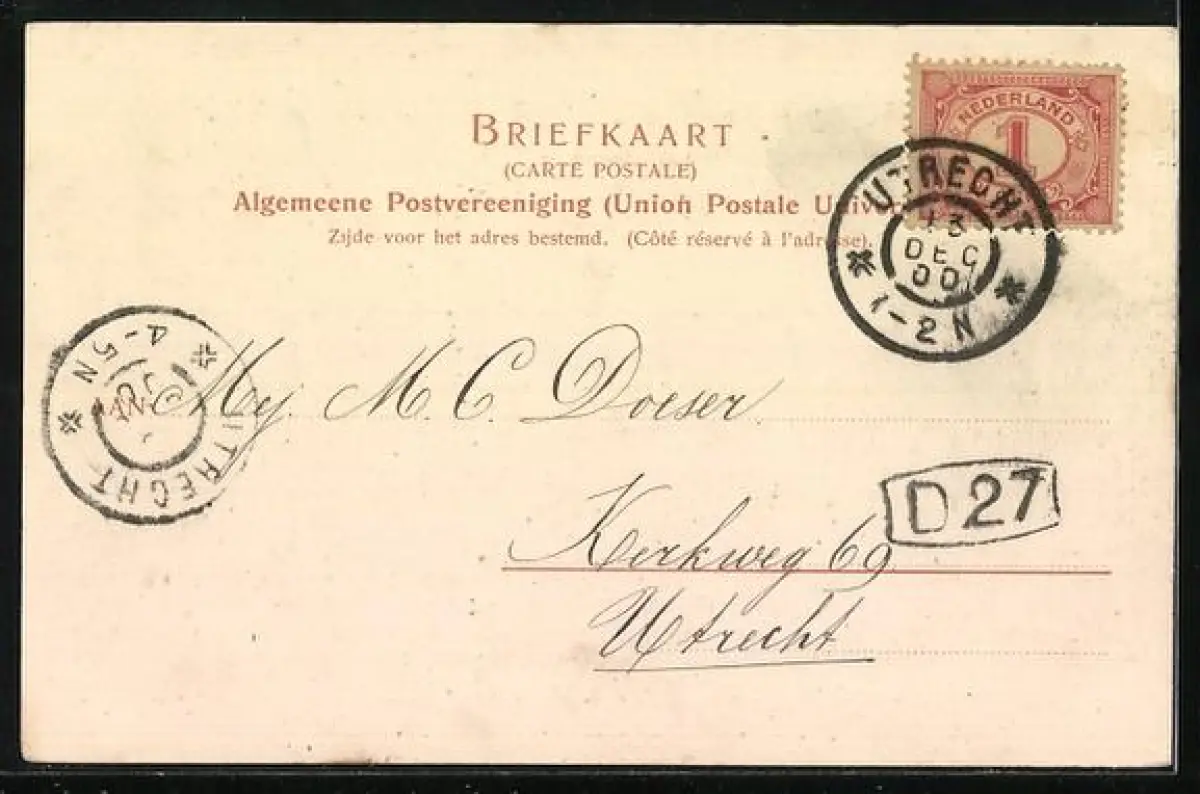 BRIEFKAART
(CARTE POSTALE)
Algemeene Postvereeniging (Union Postale Unive
Zijde voor het adres bestemd. (Côté réservé à l'adresse).
NEDERLAND
1
UTRECHT
13
DEC
00
1-2N
4-5N
UTRECHT
Mej. M. C. Doeser
D27
Kerkweg 69
Utrecht